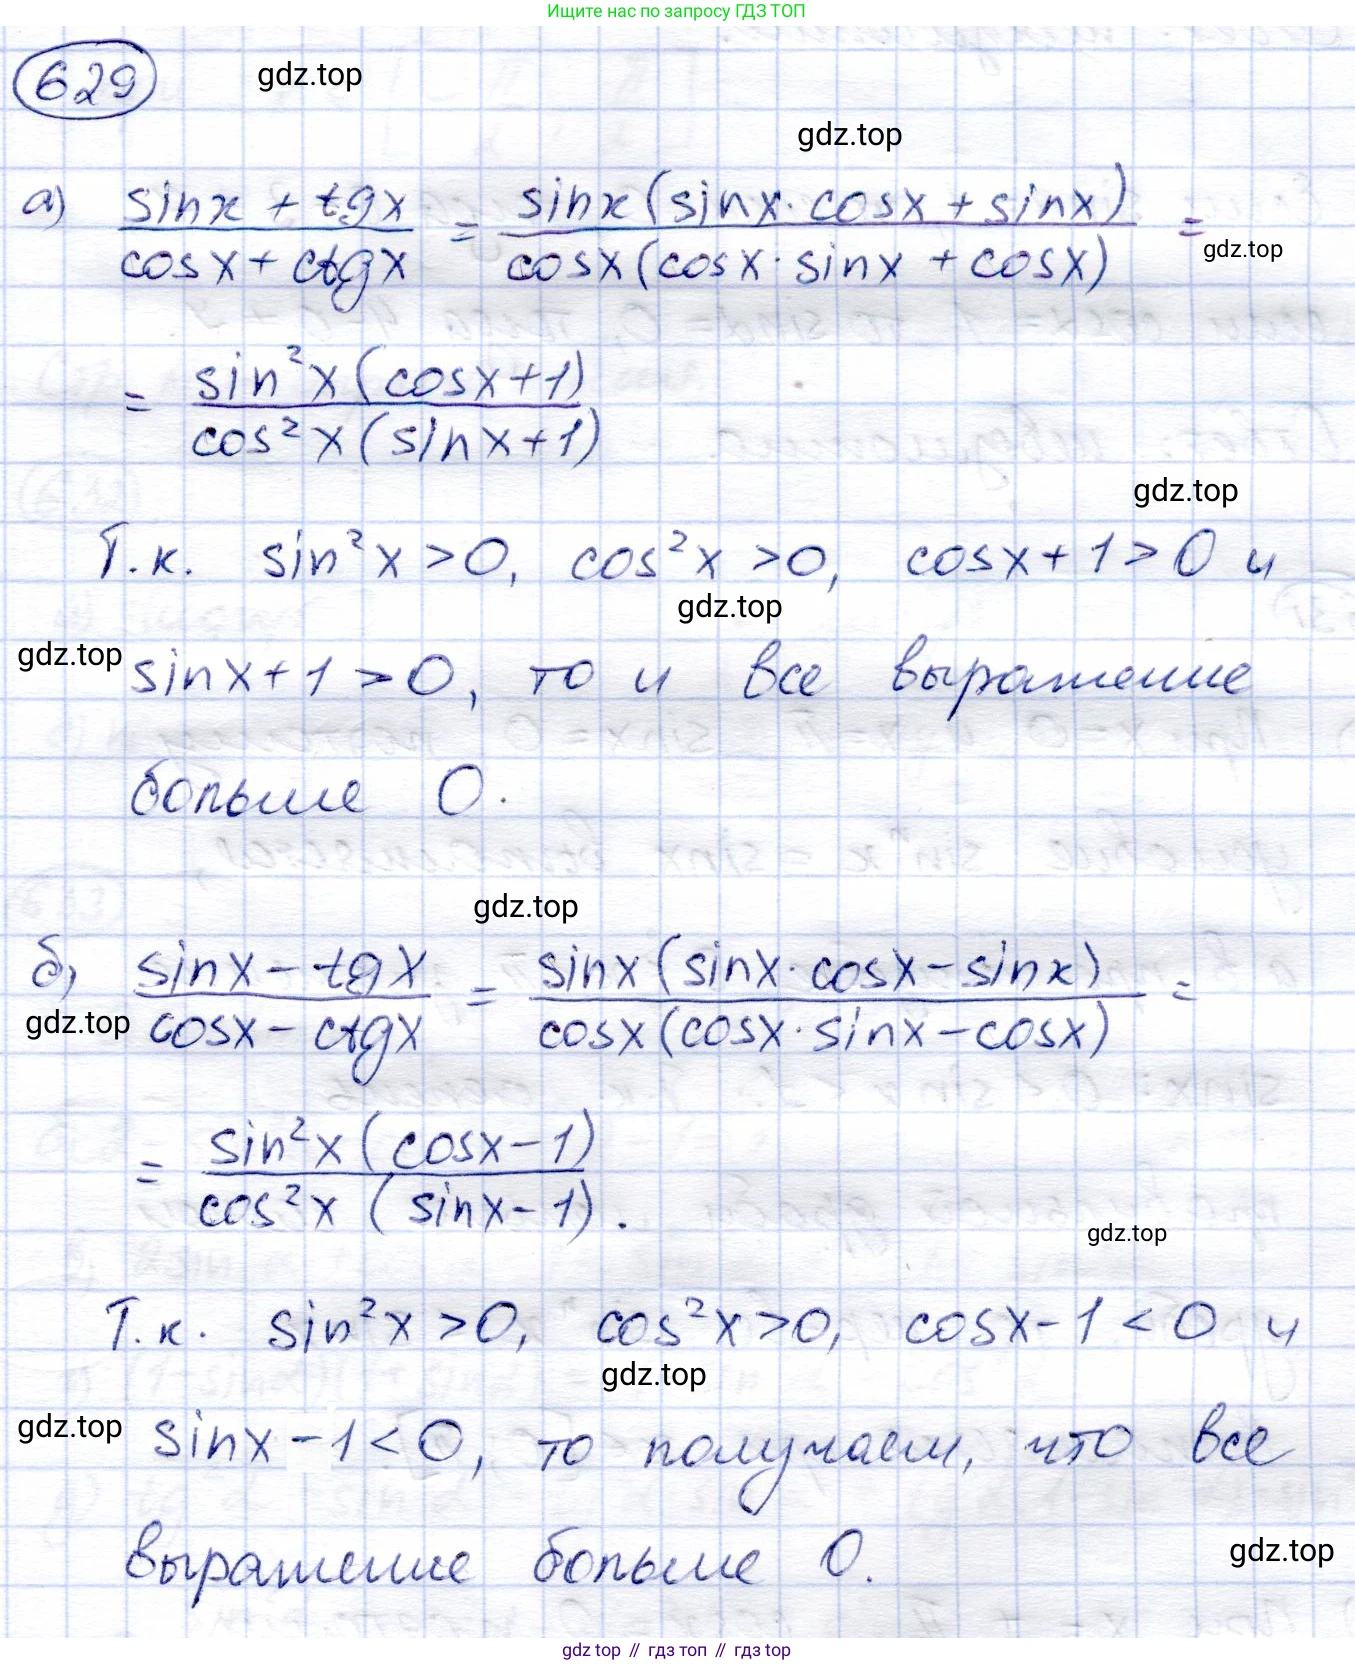 Ищите нас по запросу ГДЗ ТОП
629
gdz.top
gdz.top
а) sinx + tgx / cosx + ctgx = sinx(sinx·cosx + sinx) / cosx(cosx·sinx + cosx) =
gdz.top
= sin²x(cosx+1) / cos²x(sinx+1)
gdz.top
Т.к. sin²x > 0, cos²x > 0, cosx+1 > 0 и
gdz.top
gdz.top
sinx+1 > 0, то и все выражение
больше 0.
gdz.top
б) sinx - tgx / cosx - ctgx = sinx(sinx·cosx - sinx) / cosx(cosx·sinx - cosx) =
gdz.top
= sin²x(cosx-1) / cos²x(sinx-1).
gdz.top
Т.к. sin²x > 0, cos²x > 0, cosx-1 < 0 и
gdz.top
gdz.top
sinx-1 < 0, то получаем, что все
выражение больше 0.
gdz.top
gdz top // гдз топ // гдз top